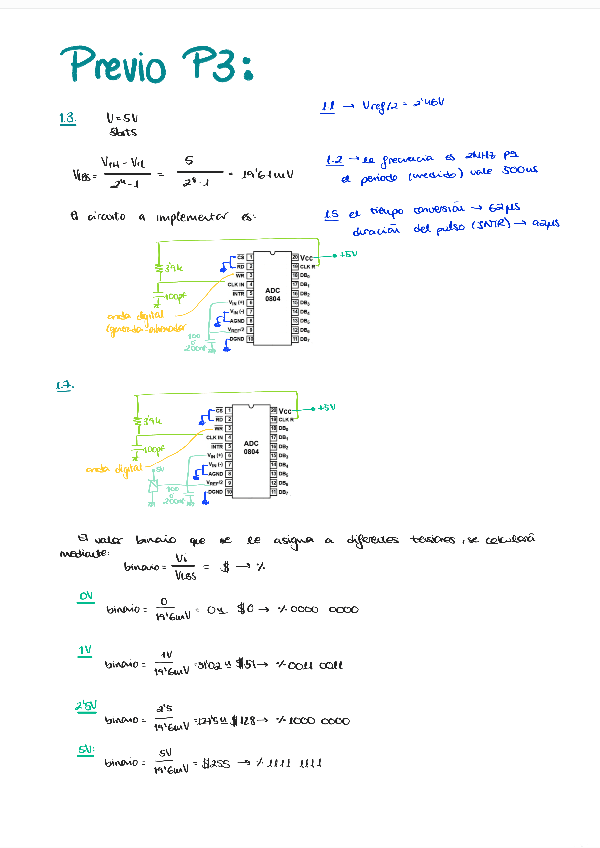 Previo P3:
1.1 → Vref/2 = 2'46V
1.3. V = 5V
8bits
1.2 → la frecuencia es 2kHz pq
el periodo (medido) vale 500us
VLBS = VIH - VIL / 2ⁿ-1 = 5 / 2⁸-1 = 19'61mV
1.5 el tiempo conversión → 62µs
duración del pulso (INTR) → 92µs
El circuito a implementar es:
+5V
3'9k
100pF
onda digital
100
200nF
CS 1
RD 2
WR 3
CLK IN 4
INTR 5
VIN (+) 6
VIN (-) 7
AGND 8
VREF/2 9
DGND 10
ADC
0804
20 VCC
19 CLK R
18 DB0
17 DB1
16 DB2
15 DB3
14 DB4
13 DB5
12 DB6
11 DB7
1.7.
+5V
3'9k
100pF
onda digital
5V
100
200nF
CS 1
RD 2
WR 3
CLK IN 4
INTR 5
VIN (+) 6
VIN (-) 7
AGND 8
VREF/2 9
DGND 10
ADC
0804
20 VCC
19 CLK R
18 DB0
17 DB1
16 DB2
15 DB3
14 DB4
13 DB5
12 DB6
11 DB7
El valor binario que se le asigna a diferentes tensiones, se calculará
mediante:
binario = Vi / VLBS = $ → %
0V
binario = 0 / 19'6mV = 0 $0 → % 0000 0000
1V
binario = 1V / 19'6mV = 51'02 $51 → % 0011 0011
2'5V
binario = 2'5 / 19'6mV = 127'5 $128 → % 1000 0000
5V:
binario = 5V / 19'6mV = $255 → % 1111 1111